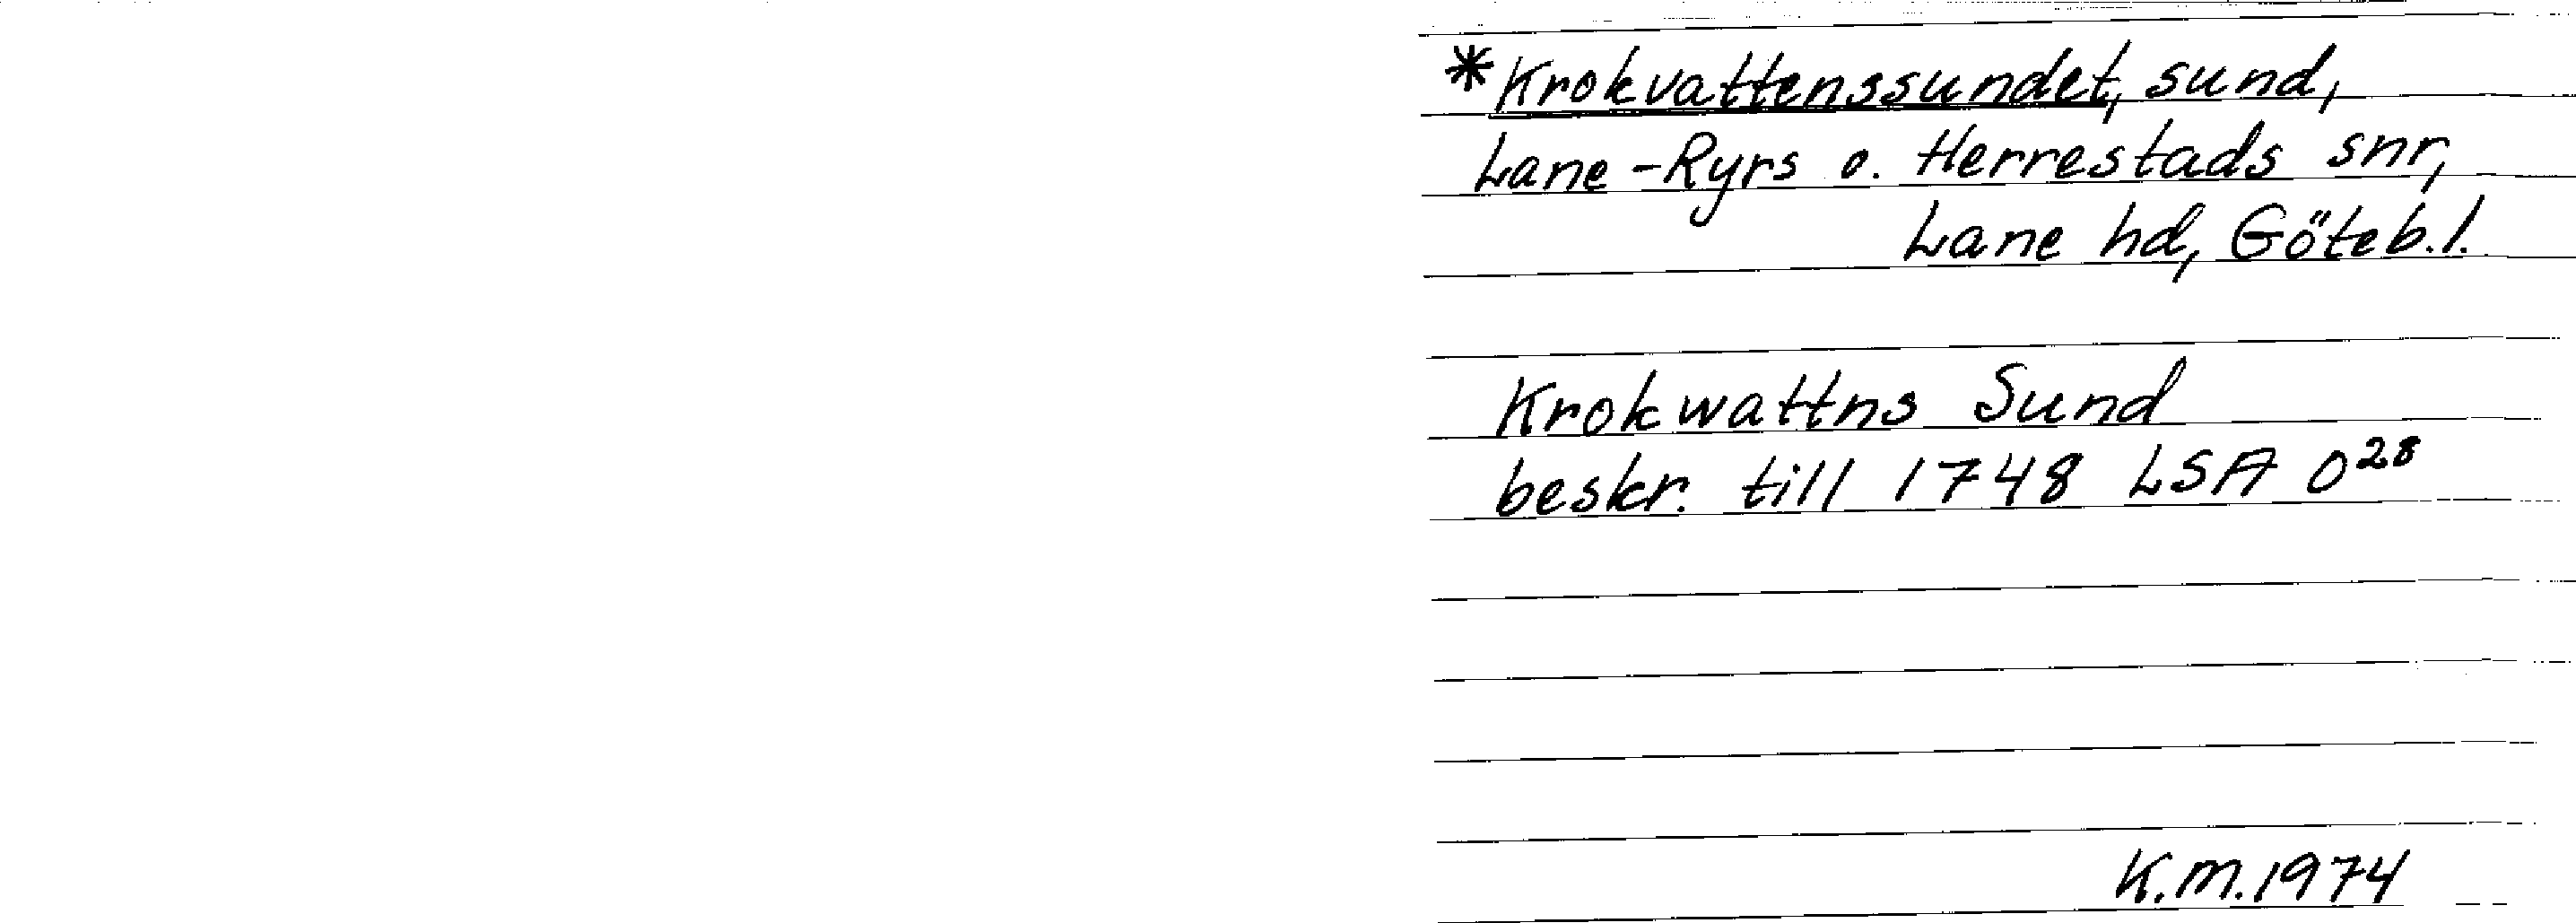 *Krokvattenssundet, sund,
Lane-Ryrs o. Herrestads snr,
Lane hd, Göteb.l.
Krokwattns Sund
beskr. till 1748 LSA O²⁸
K.M.1974